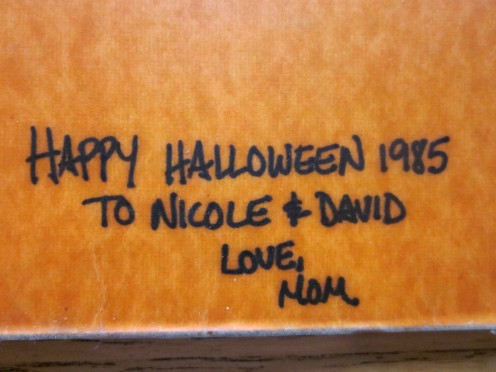 HAPPY HALLOWEEN 1985
TO NICOLE & DAVID
LOVE,
MOM.